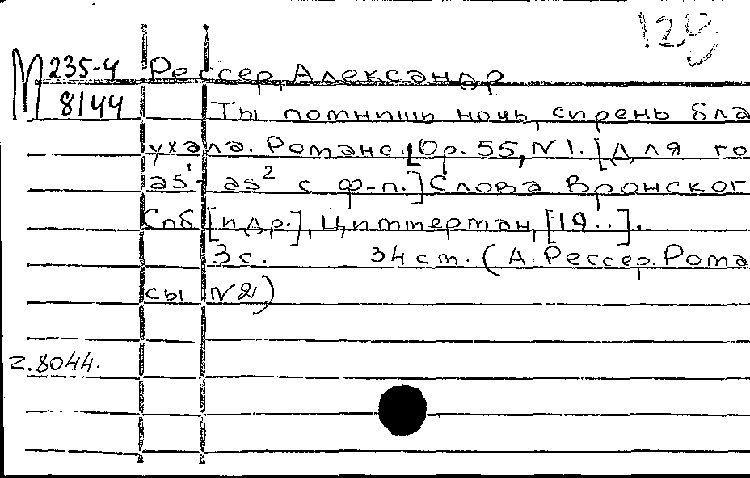 М 235-4 Рессер, Александр
8144 Ты помнишь ночь, сирень бла
ухала. Романс. [Ор. 55, N 1. [Для го
as¹- as² с ф-п.] Слова Вронског
Спб [и др.], Циммерман, [19..].
3 с. 34 см. (А. Рессер. Рома
сы N2)
2.8044.